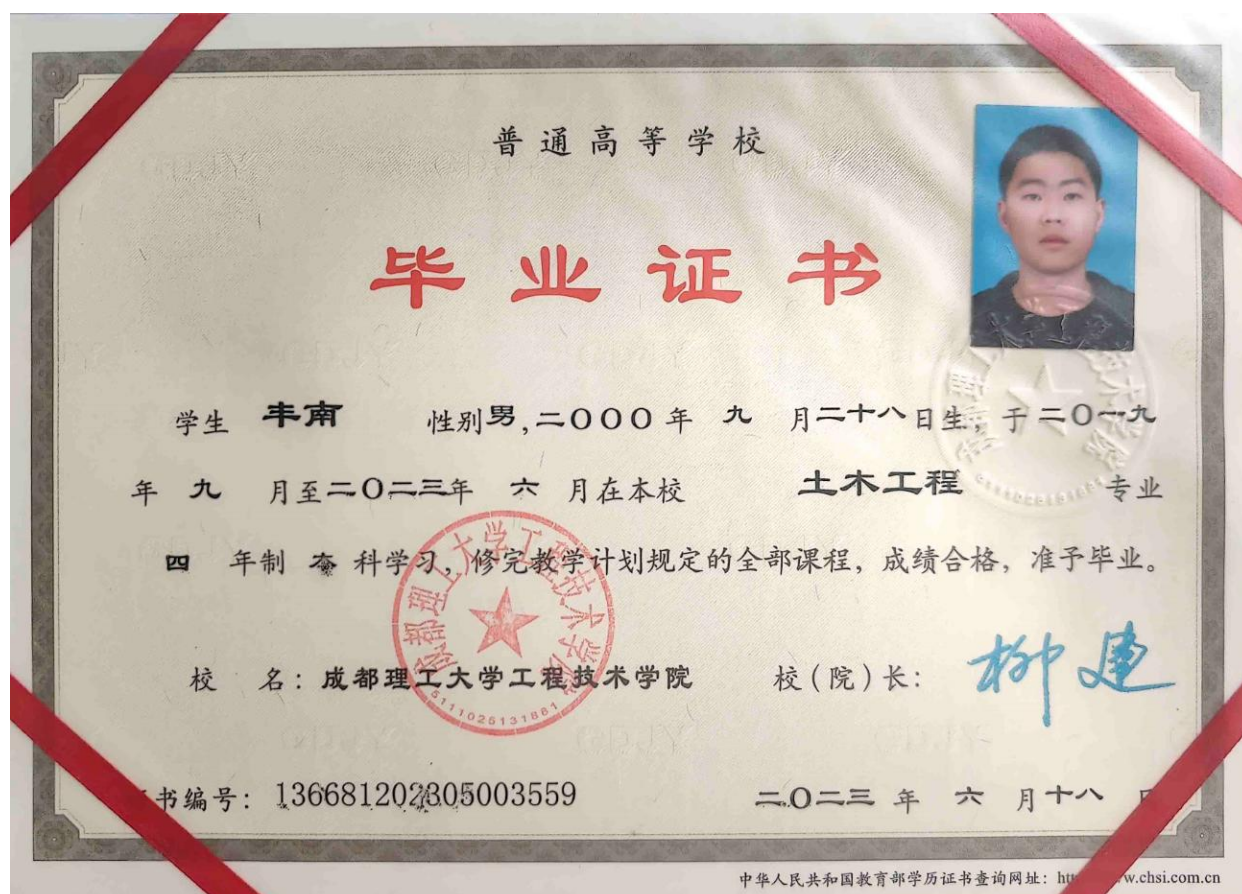 普通高等学校
毕业证书
学生 丰南 性别男,二〇〇〇年 九 月二十八日生,于二〇一九
年 九 月至二〇二三年 六 月在本校 土木工程 专业
四 年制 本 科学习,修完教学计划规定的全部课程,成绩合格,准予毕业。
成都理工大学工程技术学院
5111025131861
校 名:成都理工大学工程技术学院 校(院)长:柳建
书编号:136681202305003559 二〇二三 年 六 月十八
中华人民共和国教育部学历证书查询网址:ht w.chsi.com.cn